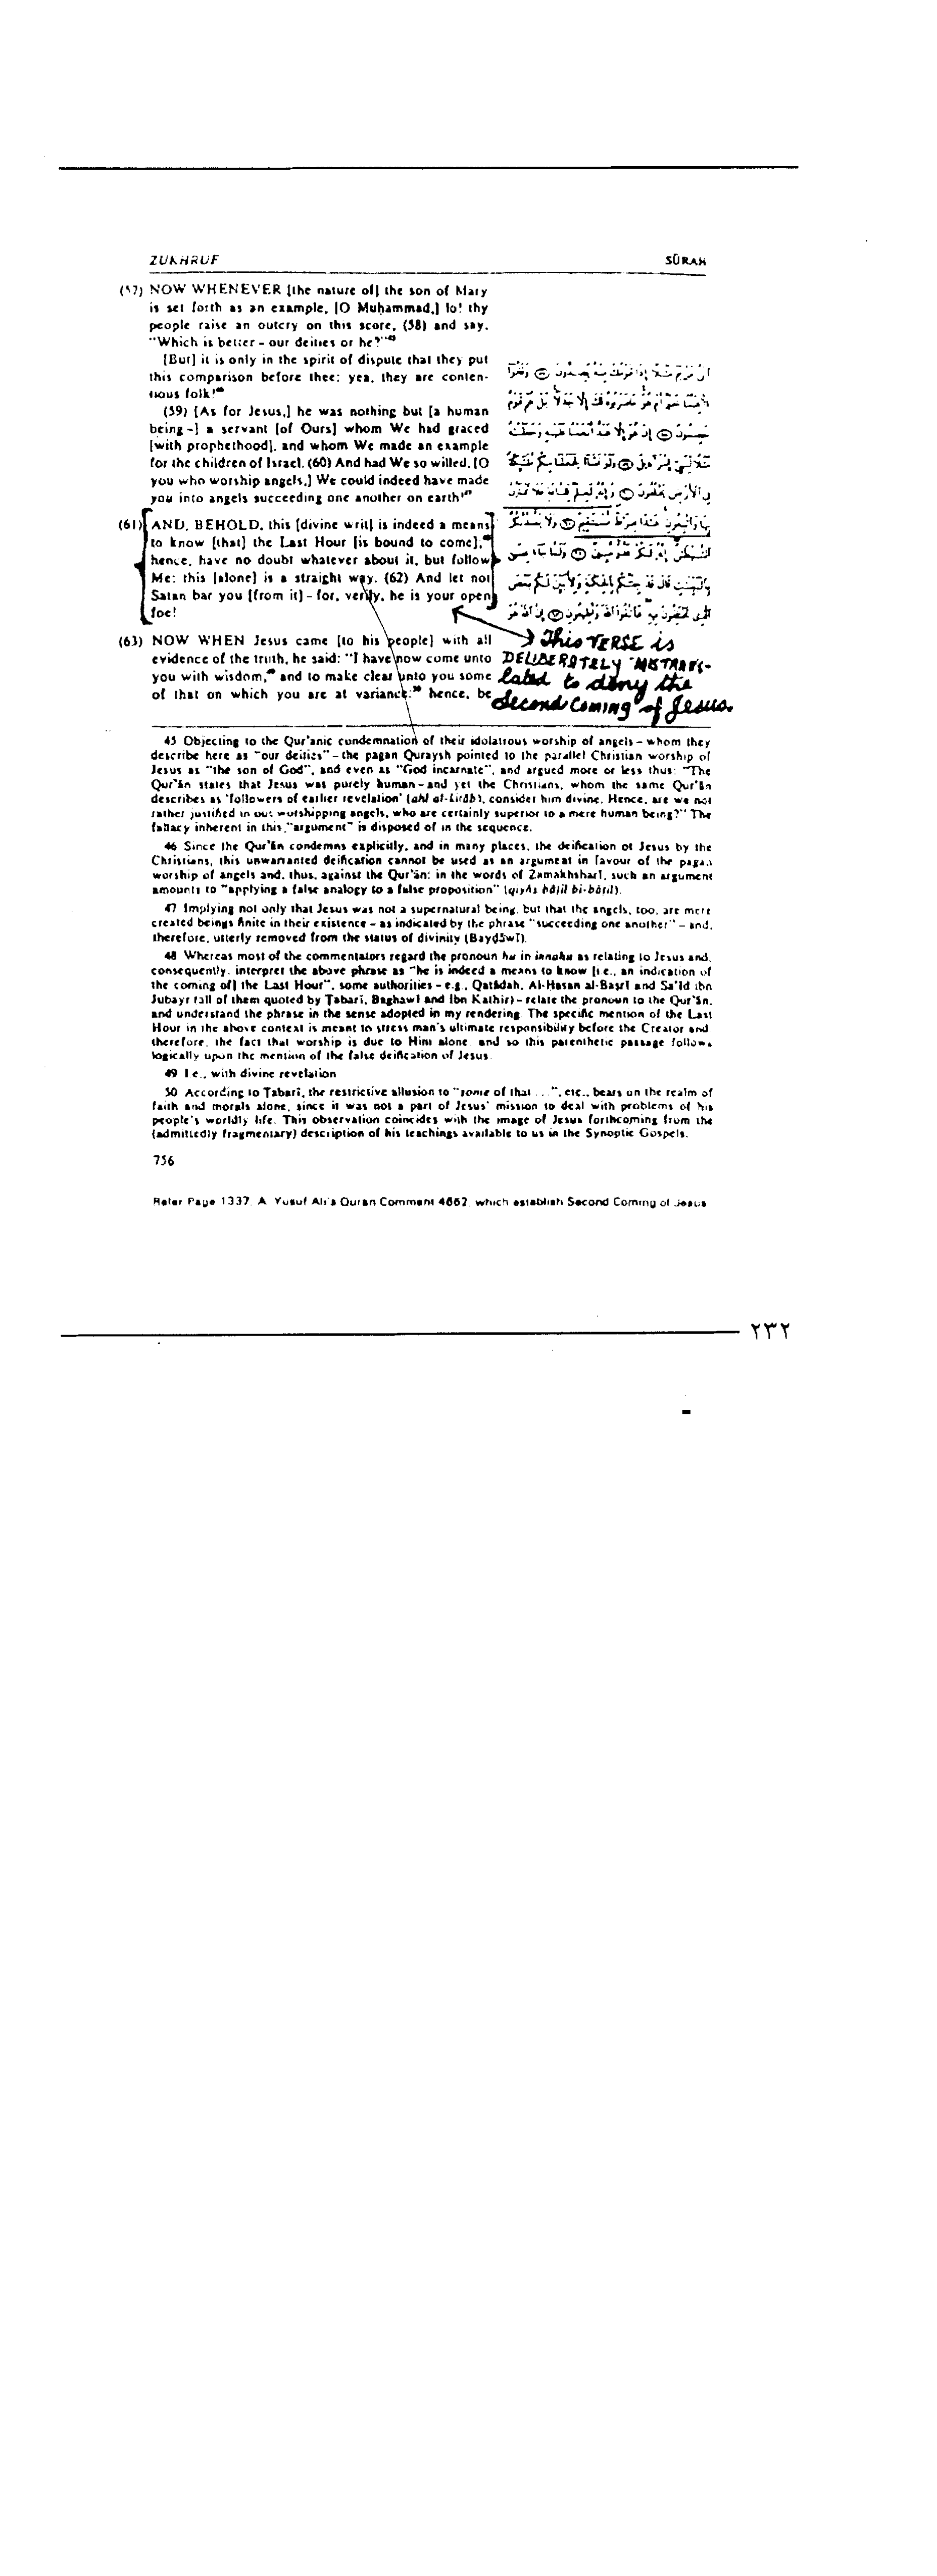 ZUKHRUF
SŪRAH
(57) NOW WHENEVER [the nature of] the son of Mary
is set forth as an example, [O Muḥammad,] lo! thy
people raise an outcry on this score, (58) and say,
"Which is better – our deities or he?"45
[But] it is only in the spirit of dispute that they put
this comparison before thee: yea, they are conten-
tious folk!46
(59) [As for Jesus,] he was nothing but [a human
being –] a servant [of Ours] whom We had graced
[with prophethood], and whom We made an example
for the children of Israel. (60) And had We so willed, [O
you who worship angels,] We could indeed have made
you into angels succeeding one another on earth!47
(61) AND, BEHOLD, this [divine writ] is indeed a means
to know [that] the Last Hour [is bound to come],48
hence, have no doubt whatever about it, but follow
Me: this [alone] is a straight way. (62) And let not
Satan bar you [from it] – for, verily, he is your open
foe!
(63) NOW WHEN Jesus came [to his people] with all
evidence of the truth, he said: "I have now come unto
you with wisdom,49 and to make clear unto you some
of that on which you are at variance:50 hence, be
This VERSE is
DELIBERATELY MISTRANS-
lated to deny the
Second Coming of Jesus.
45 Objecting to the Qur'anic condemnation of their idolatrous worship of angels – whom they
describe here as "our deities" – the pagan Quraysh pointed to the parallel Christian worship of
Jesus as "the son of God", and even as "God incarnate", and argued more or less thus: "The
Qur'ān states that Jesus was purely human – and yet the Christians, whom the same Qur'ān
describes as 'followers of earlier revelation' (ahl al-kitāb), consider him divine. Hence, are we not
rather justified in our worshipping angels, who are certainly superior to a mere human being?" The
fallacy inherent in this "argument" is disposed of in the sequence.
46 Since the Qur'ān condemns explicitly, and in many places, the deification of Jesus by the
Christians, this unwarranted deification cannot be used as an argument in favour of the pagan
worship of angels and, thus, against the Qur'ān: in the words of Zamakhsharī, such an argument
amounts to "applying a false analogy to a false proposition" (qiyās bāṭil bi-bāṭil).
47 Implying not only that Jesus was not a supernatural being, but that the angels, too, are mere
created beings finite in their existence – as indicated by the phrase "succeeding one another" – and,
therefore, utterly removed from the status of divinity (Bayḍāwī).
48 Whereas most of the commentators regard the pronoun hu in innahu as relating to Jesus and,
consequently, interpret the above phrase as "he is indeed a means to know [i.e., an indication of
the coming of] the Last Hour", some authorities – e.g., Qatādah, Al-Ḥasan al-Baṣrī and Sa'īd ibn
Jubayr (all of them quoted by Ṭabarī, Baghawī and Ibn Kathīr) – relate the pronoun to the Qur'ān,
and understand the phrase in the sense adopted in my rendering. The specific mention of the Last
Hour in the above context is meant to stress man's ultimate responsibility before the Creator and,
therefore, the fact that worship is due to Him alone: and so this parenthetic passage follows
logically upon the mention of the false deification of Jesus.
49 I.e., with divine revelation
50 According to Ṭabarī, the restrictive allusion to "some of that ...", etc., bears on the realm of
faith and morals alone, since it was not a part of Jesus' mission to deal with problems of his
people's worldly life. This observation coincides with the image of Jesus forthcoming from the
(admittedly fragmentary) description of his teachings available to us in the Synoptic Gospels.
756
Refer Page 1337, A. Yusuf Ali's Quran Comment 4662, which establish Second Coming of Jesus
٢٣٢